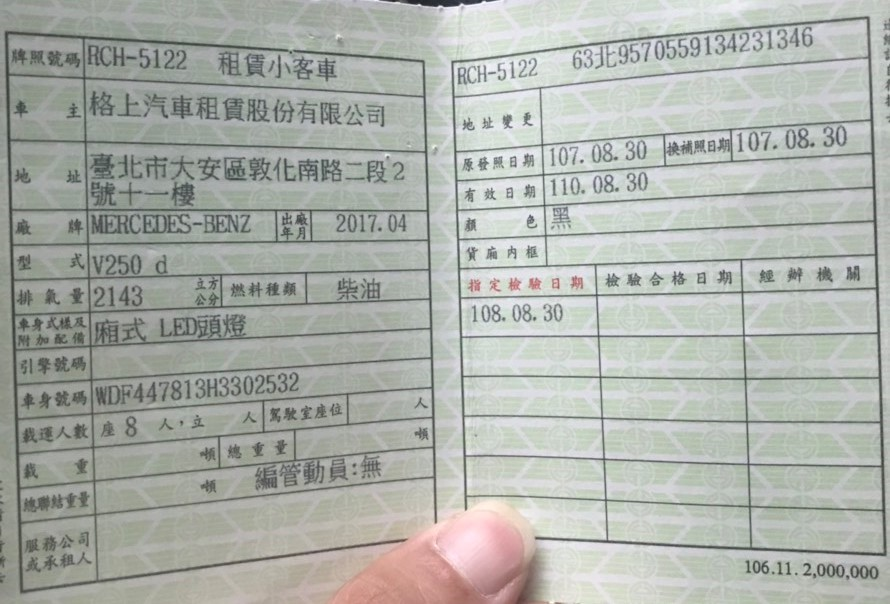 牌照號碼 RCH-5122 租賃小客車
車主 格上汽車租賃股份有限公司
地址 臺北市大安區敦化南路二段2
號十一樓
廠牌 MERCEDES-BENZ 出廠年月 2017.04
型式 V250 d
排氣量 2143 立方公分 燃料種類 柴油
車身式樣及附加配備 廂式 LED頭燈
引擎號碼
車身號碼 WDF447813H3302532
載運人數 座 8 人,立 人 駕駛室座位 人
載重 噸 總重量 噸
總聯結重量 噸 編管動員:無
服務公司
或承租人
RCH-5122 63北9570559134231346
地址變更
原發照日期 107.08.30 換補照日期 107.08.30
有效日期 110.08.30
顏色 黑
貨廂內框
指定檢驗日期 檢驗合格日期 經辦機關
108.08.30
106.11.2,000,000